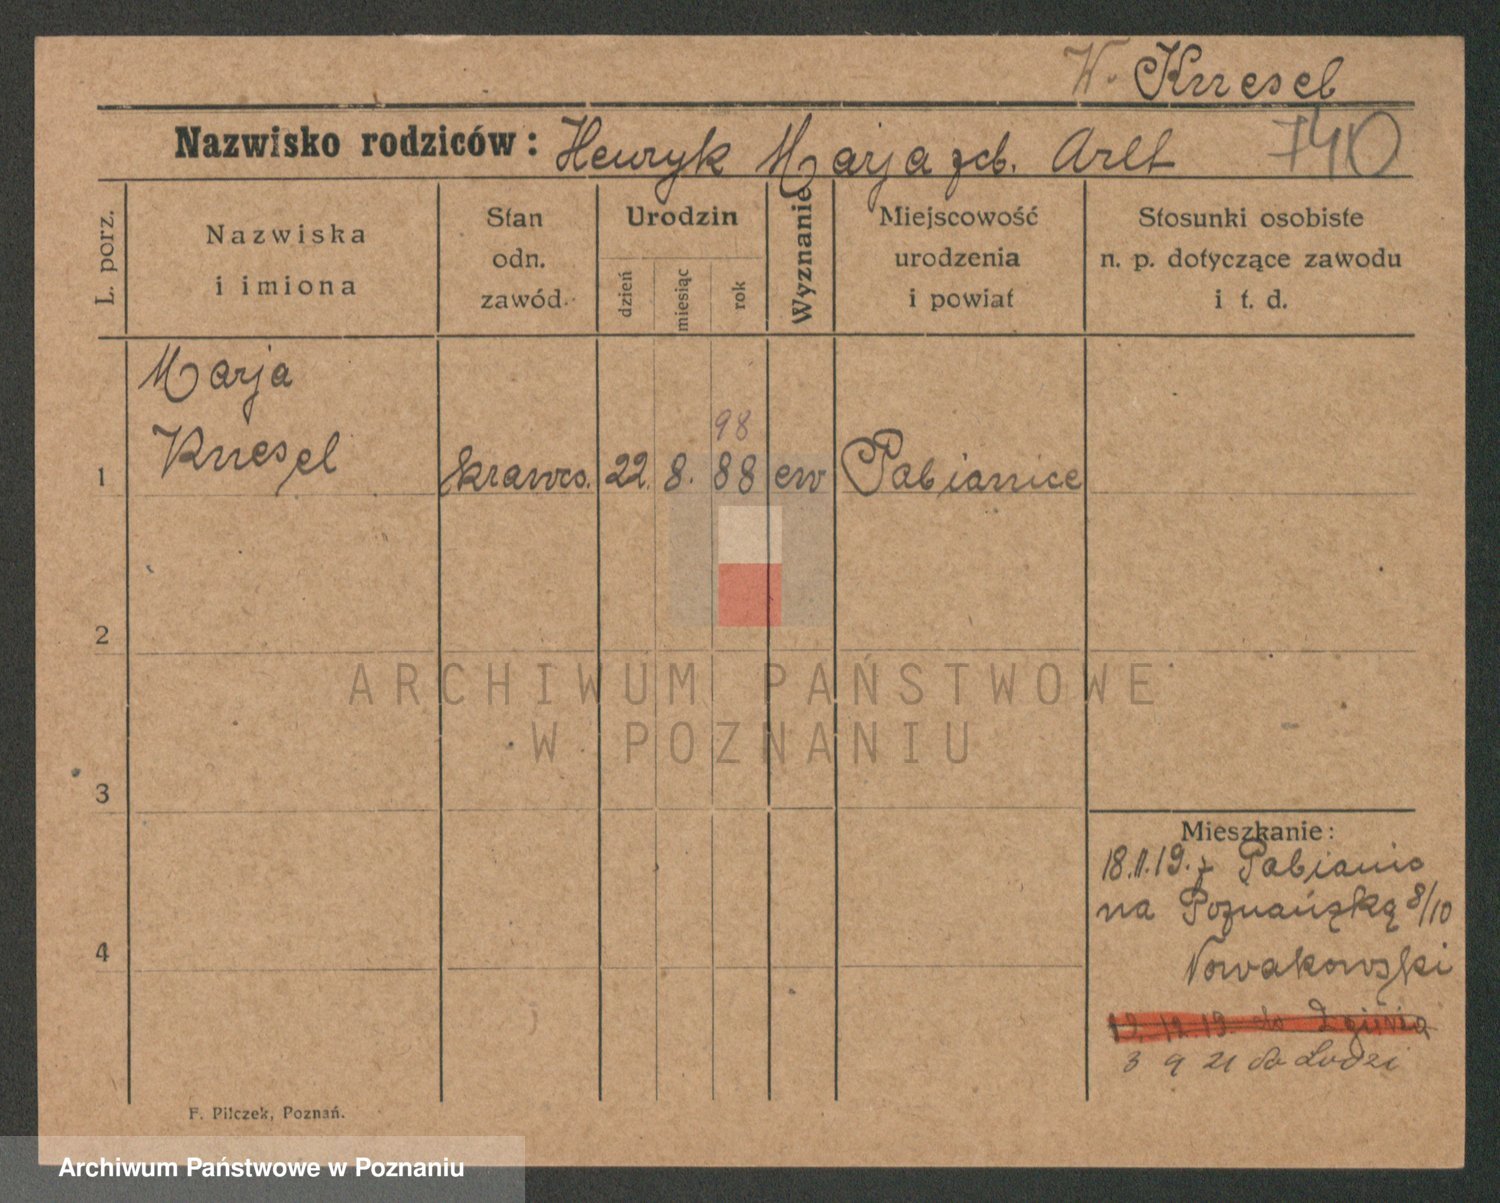 W. Knesel
Nazwisko rodziców: Henryk Marja zob. Arlt 740
L. porz.
Nazwiska
i imiona
Stan
odn.
zawód.
Urodzin
dzień
miesiąc
rok
Wyznanie
Miejscowość
urodzenia
i powiat
Stosunki osobiste
n. p. dotyczące zawodu
i t. d.
Marja
98
1 Knesel krawco. 22. 8. 88 ew Pabianice
2
ARCHIWUM PAŃSTWOWE
W POZNANIU
3
Mieszkanie:
18.11.19. z Pabianic
na Poznańską 8/10
4 Nowakowski
19. 12. 19. do Zgierza
3 9 21 do Lodzi
F. Pilczek, Poznań.
Archiwum Państwowe w Poznaniu